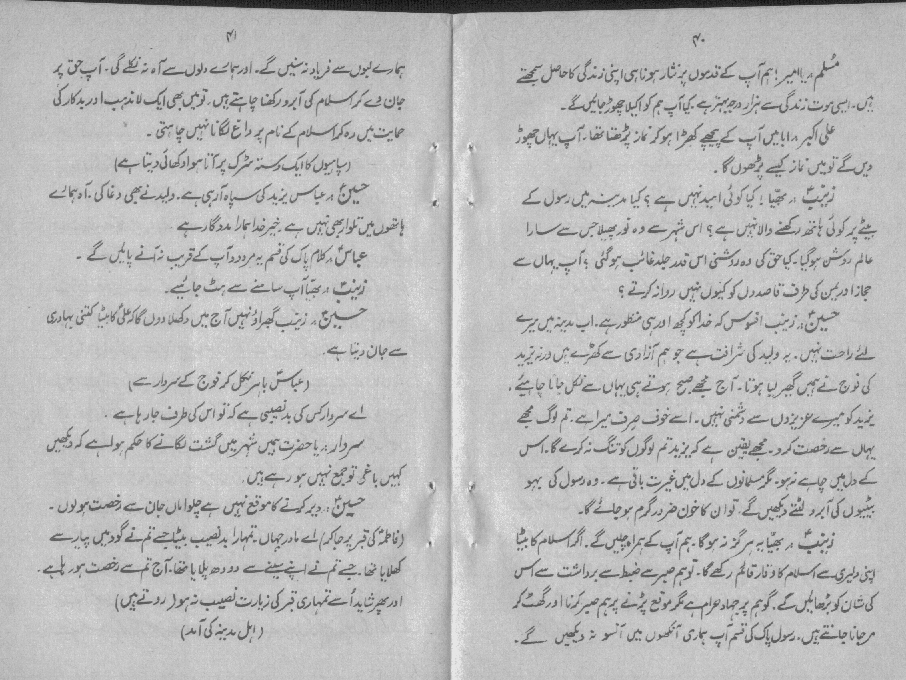 ۴۰
مُسلم :۔ یا امیر! ہم آپ کے قدموں پر نثار ہونا ہی اپنی زندگی کا حاصل سمجھتے
ہیں۔ ایسی موت زندگی سے ہزار درجہ بہتر ہے۔ کیا آپ ہم کو اکیلا چھوڑ جائیں گے۔
علی اکبر :۔ ابا میں آپ کے پیچھے کھڑا ہو کر نماز پڑھتا تھا۔ آپ یہاں چھوڑ
دیں گے تو میں نماز کیسے پڑھوں گا۔
زینبؑ :۔ بھیّا! کیا کوئی امید نہیں ہے؟ کیا مدینہ میں رسول کے
بیٹے پر کوئی ہاتھ رکھنے والا نہیں ہے؟ اس شہر سے وہ نور پھیلا جس سے سارا
عالم روشن ہوگیا۔ کیا حق کی وہ روشنی اس قدر جلد غائب ہو گئی؟ آپ یہاں سے
حجاز اور یمن کی طرف قاصدوں کو کیوں نہیں روانہ کرتے؟
حسینؑ :۔ زینب افسوس کہ خدا کو کچھ اور ہی منظور ہے۔ اب مدینہ میں میرے
لئے راحت نہیں۔ یہ ولید کی شرافت ہے جو ہم آزادی سے کھڑے ہیں ورنہ یزید
کی فوج نے ہمیں گھیر لیا ہوتا۔ آج مجھے صبح ہوتے ہی یہاں سے نکل جانا چاہیئے،
یزید کو میرے عزیزوں سے دشمنی نہیں۔ اسے خوف صرف میرا ہے۔ تم لوگ مجھے
یہاں سے رخصت کرو۔ مجھے یقین ہے کہ یزید تم لوگوں کو تنگ نہ کرے گا۔ اس
کے دل میں چاہے نہ ہو۔ مگر مسلمانوں کے دل میں غیرت باقی ہے۔ وہ رسول کی بہو
بیٹیوں کی آبرو لٹتے دیکھیں گے، تو ان کا خون ضرور گرم ہو جائے گا۔
زینبؑ :۔ بھیّا یہ ہرگز نہ ہوگا۔ ہم آپ کے ہمراہ چلیں گے۔ اگر اسلام کا بیٹا
اپنی دلیری سے اسلام کا وقار قائم رکھے گا۔ تو ہم صبر سے ضبط سے برداشت سے اس
کی شان کو بڑھائیں گے۔ گو ہم پر جہاد حرام ہے مگر موقع پڑنے پر ہم صبر کرنا اور گھٹ کر
مر جانا جانتے ہیں۔ رسول پاک کی قسم آپ ہماری آنکھوں میں آنسو نہ دیکھیں گے۔
۴۱
ہمارے لبوں سے فریاد نہ سنیں گے۔ اور ہمارے دلوں سے آہ نہ نکلے گی۔ آپ حق پر
جان دے کر اسلام کی آبرو رکھنا چاہتے ہیں، تو میں بھی ایک لا مذہب اور بدکار کی
حمایت میں رہ کر اسلام کے نام پر داغ لگانا نہیں چاہتی۔
(سپاہیوں کا ایک دستہ سڑک پر آتا ہوا دکھائی دیتا ہے)
حسینؑ :۔ عباس یزید کی سپاہ آ رہی ہے۔ ولید نے بھی دغا کی، آہ ہمارے
ہاتھوں میں تلوار بھی نہیں ہے۔ خیر خدا ہمارا مددگار ہے
عباسؑ :۔ کلام پاک کی قسم یہ مردود آپ کے قریب نہ آنے پائیں گے۔
زینبؑ :۔ بھیّا آپ سامنے سے ہٹ جائیے۔
حسینؑ :۔ زینب گھبراؤ نہیں آج میں دکھلا دوں گا کہ علیؑ کا بیٹا کتنی بہادری
سے جان دیتا ہے۔
(عباسؑ باہر نکل کر فوج کے سردار سے)
اے سردار کس کی بدنصیبی ہے کہ تو اس کی طرف جا رہا ہے۔
سردار :۔ یا حضرت ہمیں شہر میں گشت لگانے کا حکم ہوا ہے کہ دیکھیں
کہیں باغی تو جمع نہیں ہو رہے ہیں۔
حسینؑ :۔ دیر کرنے کا موقع نہیں ہے چلو اماں جان سے رخصت ہو لوں۔
(فاطمہؑ کی قبر پر جا کر) اے مادر جہاں۔ تمہارا بدنصیب بیٹا جسے تم نے گود میں پیار سے
کھلایا تھا۔ جسے تم نے اپنے سینے سے دودھ پلایا تھا۔ آج تم سے رخصت ہو رہا ہے۔
اور پھر شاید اُسے تمہاری قبر کی زیارت نصیب نہ ہو (روتے ہیں)
(اہل مدینہ کی آمد)